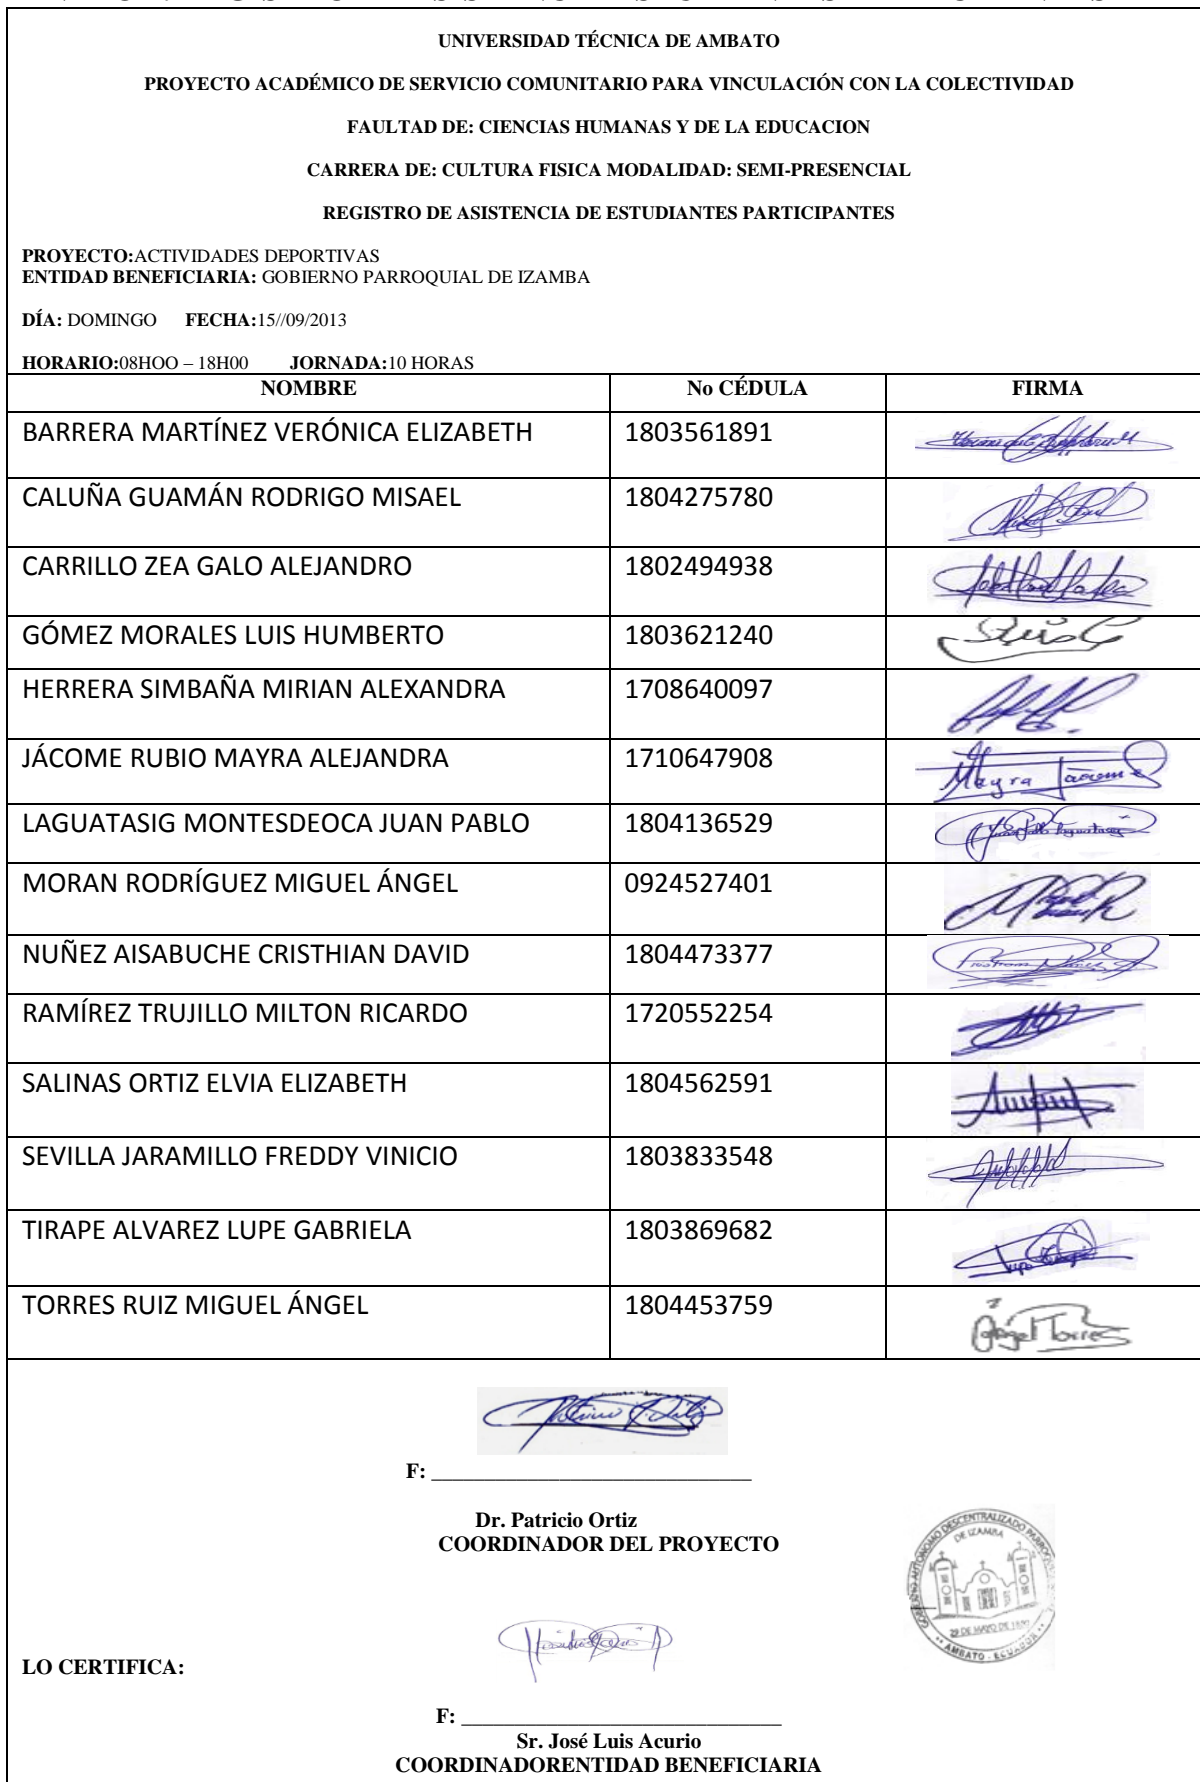 UNIVERSIDAD TÉCNICA DE AMBATO
PROYECTO ACADÉMICO DE SERVICIO COMUNITARIO PARA VINCULACIÓN CON LA COLECTIVIDAD
FAULTAD DE: CIENCIAS HUMANAS Y DE LA EDUCACION
CARRERA DE: CULTURA FISICA MODALIDAD: SEMI-PRESENCIAL
REGISTRO DE ASISTENCIA DE ESTUDIANTES PARTICIPANTES
PROYECTO:ACTIVIDADES DEPORTIVAS
ENTIDAD BENEFICIARIA: GOBIERNO PARROQUIAL DE IZAMBA
DÍA: DOMINGO FECHA:15//09/2013
HORARIO:08HOO – 18H00 JORNADA:10 HORAS
NOMBRE No CÉDULA FIRMA
BARRERA MARTÍNEZ VERÓNICA ELIZABETH 1803561891
CALUÑA GUAMÁN RODRIGO MISAEL 1804275780
CARRILLO ZEA GALO ALEJANDRO 1802494938
GÓMEZ MORALES LUIS HUMBERTO 1803621240
HERRERA SIMBAÑA MIRIAN ALEXANDRA 1708640097
JÁCOME RUBIO MAYRA ALEJANDRA 1710647908 Mayra Jácome
LAGUATASIG MONTESDEOCA JUAN PABLO 1804136529
MORAN RODRÍGUEZ MIGUEL ÁNGEL 0924527401
NUÑEZ AISABUCHE CRISTHIAN DAVID 1804473377
RAMÍREZ TRUJILLO MILTON RICARDO 1720552254
SALINAS ORTIZ ELVIA ELIZABETH 1804562591
SEVILLA JARAMILLO FREDDY VINICIO 1803833548
TIRAPE ALVAREZ LUPE GABRIELA 1803869682
TORRES RUIZ MIGUEL ÁNGEL 1804453759 Ángel Torres
F: ______________________________
Dr. Patricio Ortiz
COORDINADOR DEL PROYECTO
GOBIERNO AUTÓNOMO DESCENTRALIZADO
DE IZAMBA
29 DE MAYO DE
AMBATO - ECUADOR
LO CERTIFICA:
F: ______________________________
Sr. José Luis Acurio
COORDINADORENTIDAD BENEFICIARIA